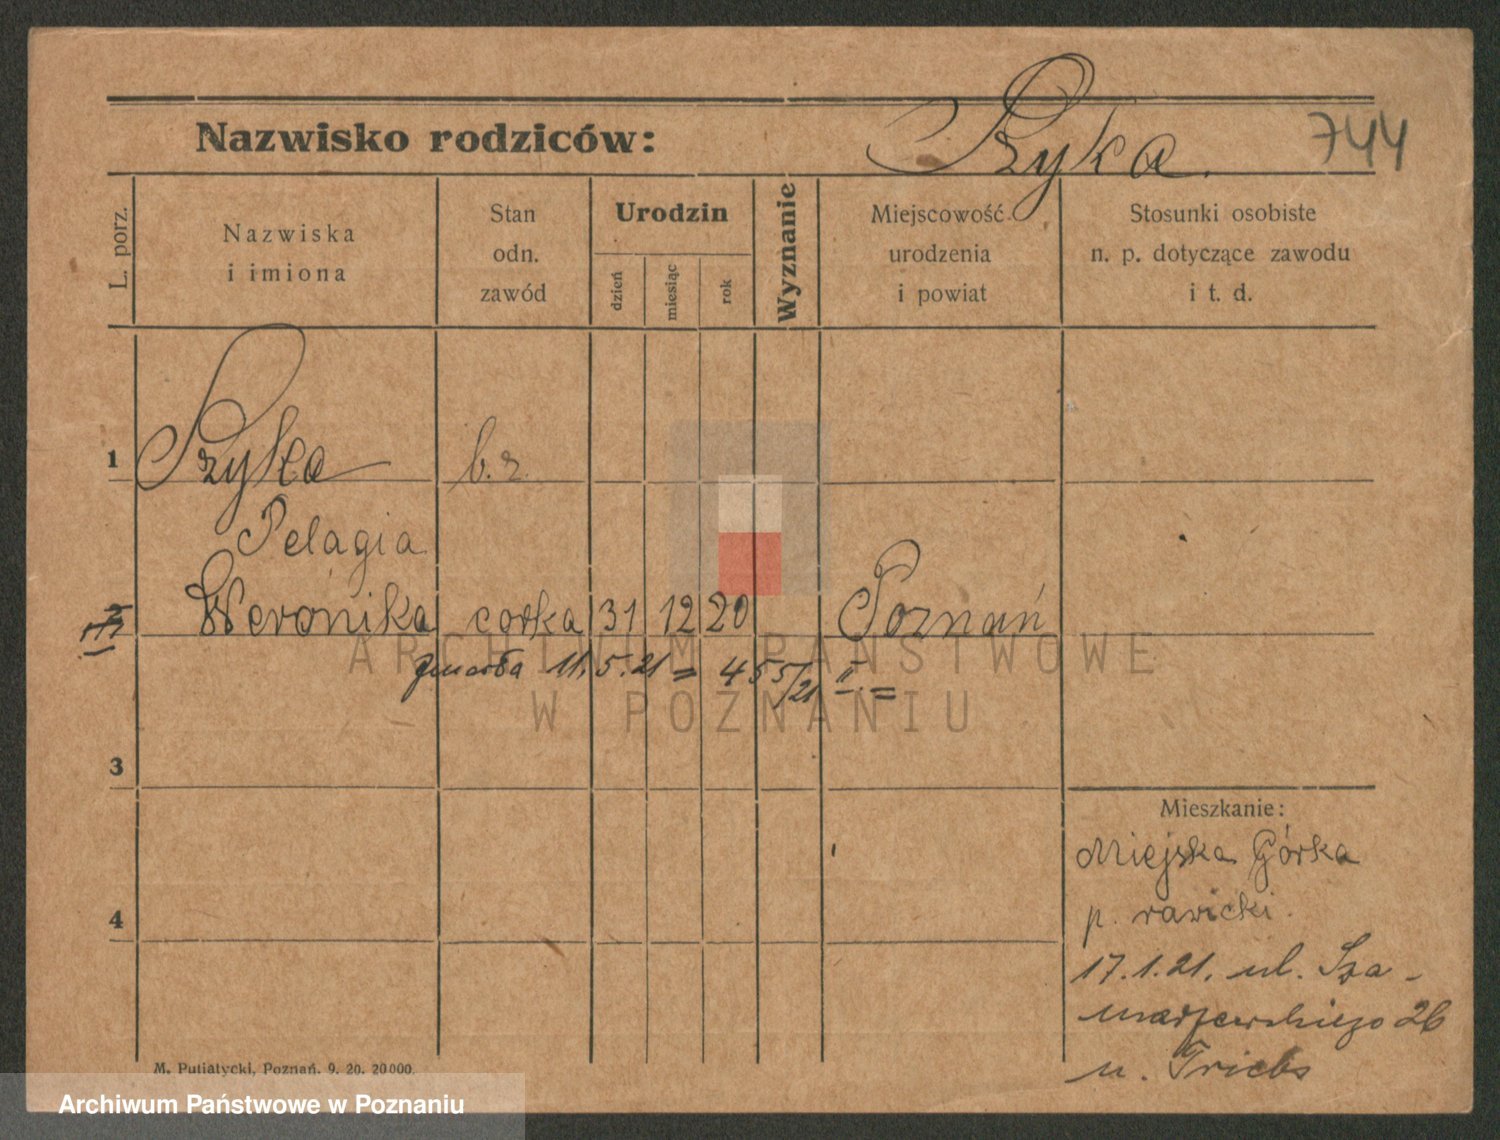 Nazwisko rodziców: Szyka. 744
L. porz.
Nazwiska
i imiona
Stan
odn.
zawód
Urodzin
dzień
miesiąc
rok
Wyznanie
Miejscowość
urodzenia
i powiat
Stosunki osobiste
n. p. dotyczące zawodu
i t. d.
1 Szyka b.z.
Pelagia
Weronika corka 31 12 20 Poznań
zmarła 11.5.21 = 455/21 II. =
3
4
Mieszkanie:
Miejska Górka
p. rawicki.
17.1.21. ul. Sza-
marzewskiego 26
u. Triebs
M. Putiatycki, Poznań. 9. 20. 20000.
ARCHIWUM PAŃSTWOWE
W POZNANIU
Archiwum Państwowe w Poznaniu